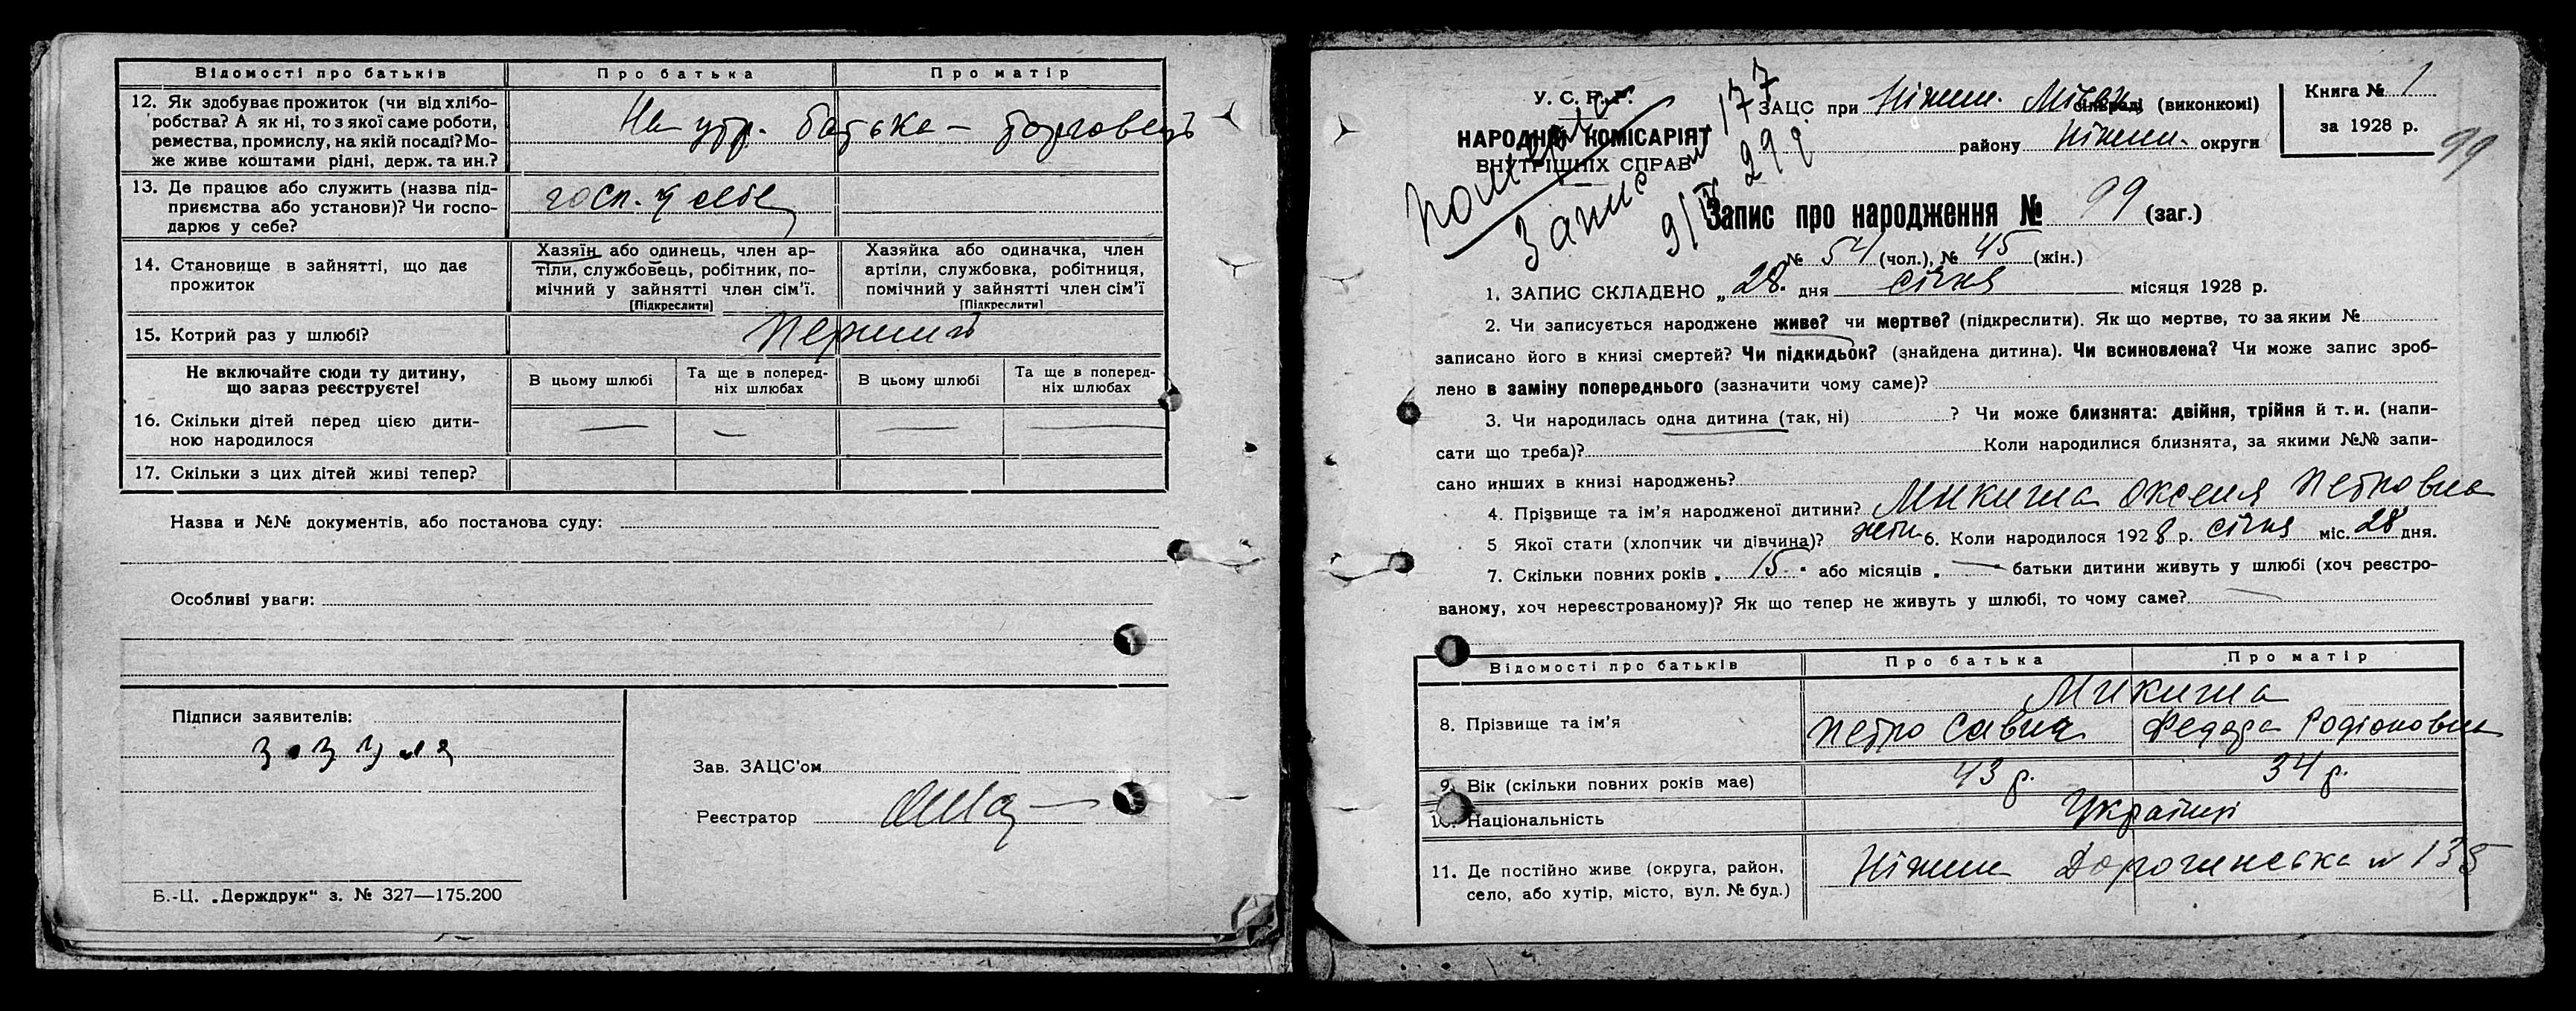 Відомості про батьків Про батька Про матір
12. Як здобуває прожиток (чи від хлібо-
робства? А як ні, то з якої саме роботи,
ремества, промислу, на якій посаді? Мо-
же живе коштами рідні, держ. та ин.?
На утр. батька – торговець
13. Де працює або служить (назва під-
приємства або установи)? Чи госпо-
дарює у себе?
госп. у себе
14. Становище в зайнятті, що дає
прожиток
Хазяїн або одинець, член ар-
тілі, службовець, робітник, по-
мічний у зайнятті член сім'ї.
[Підкреслити]
Хазяйка або одиначка, член
артілі, службовка, робітниця,
помічний у зайнятті член сім'ї
[Підкреслити]
15. Котрий раз у шлюбі?
Перший
Не включайте сюди ту дитину,
що зараз реєструєте!
В цьому шлюбі
Та ще в поперед-
ніх шлюбах
В цьому шлюбі
Та ще в поперед-
ніх шлюбах
16. Скільки дітей перед цією дити-
ною народилося
— — — —
17. Скільки з цих дітей живі тепер?
Назва и №№ документів, або постанова суду:
Особливі уваги:
Підписи заявителів:
Зав. ЗАЦС'ом
Реєстратор
Б.-Ц. „Держдрук“ з. № 327—175.200
У. С. Р. Р.
НАРОДНІЙ КОМІСАРІЯТ
ВНУТРІШНІХ СПРАВ
Запис 9/IV
177
299
ЗАЦС при Ніжин. Міськ. сільраді (виконкомі)
району Ніжин. округи
Книга № 1
за 1928 р.
99
Запис про народження № 99 (заг.)
№ 54 (чол.), № 45 (жін.)
1. ЗАПИС СКЛАДЕНО „28. дня січня місяця 1928 р.
2. Чи записується народжене живе? чи мертве? (підкреслити). Як що мертве, то за яким №
записано його в книзі смертей? Чи підкидьок? (знайдена дитина). Чи всиновлена? Чи може запис зроб-
лено в заміну попереднього (зазначити чому саме)?
3. Чи народилась одна дитина (так, ні) ? Чи може близнята: двійня, трійня й т. и. (напи-
сати що треба)? Коли народилися близнята, за якими №№ запи-
сано инших в книзі народжень?
4. Прізвище та ім'я народженої дитини? Микиша Оксеня Петровна
5 Якої стати (хлопчик чи дівчина)? жін 6. Коли народилося 1928 р. січня міс. 28 дня.
7. Скільки повних років „ 15 “ або місяців „ — “ батьки дитини живуть у шлюбі (хоч реєстро-
ваному, хоч нереєстрованому)? Як що тепер не живуть у шлюбі, то чому саме? —
Відомості про батьків Про батька Про матір
8. Прізвище та ім'я
Микиша
Петро Савич Федора Родіоновна
9. Вік (скільки повних років має) 43 р. 34 р.
10. Національність Українці
11. Де постійно живе (округа, район,
село, або хутір, місто, вул. № буд.)
Ніжин Дорогинська № 135